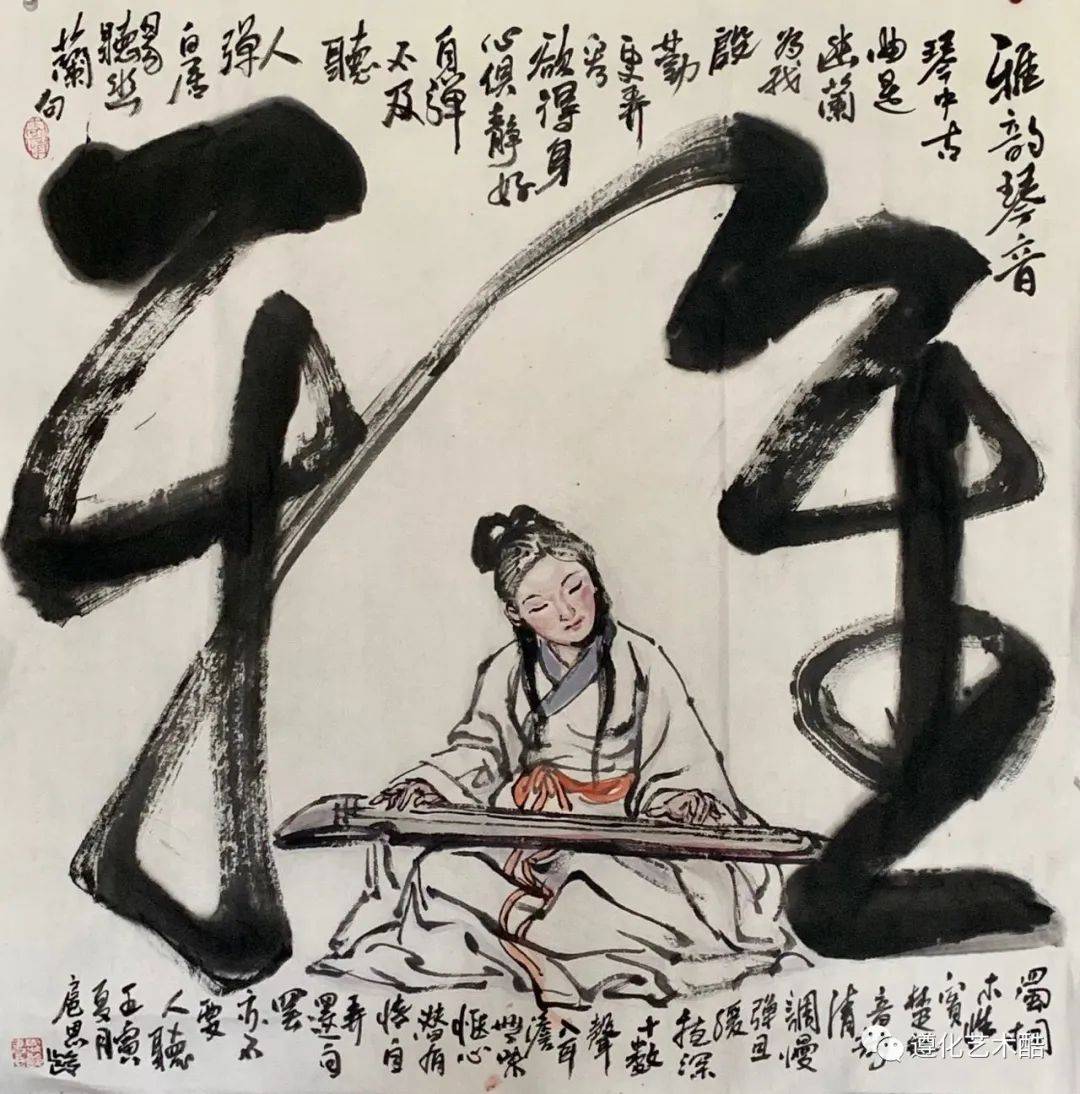 雅韵琴音
琴中古
曲是
幽蘭
为我
殷
勤
更弄
看
欲得身
心俱静好
自弹
不及
聽
人
弹
白居
易
聽幽
蘭句
蜀桐
木性
實
楚
音
清
調慢
弹且
緩
夜深
十數
聲
入耳
澹
無味
愜心
潜有
情自
弄
還自
罷
亦不
要
人聽
壬寅
夏月
扈思
遵化艺术酷